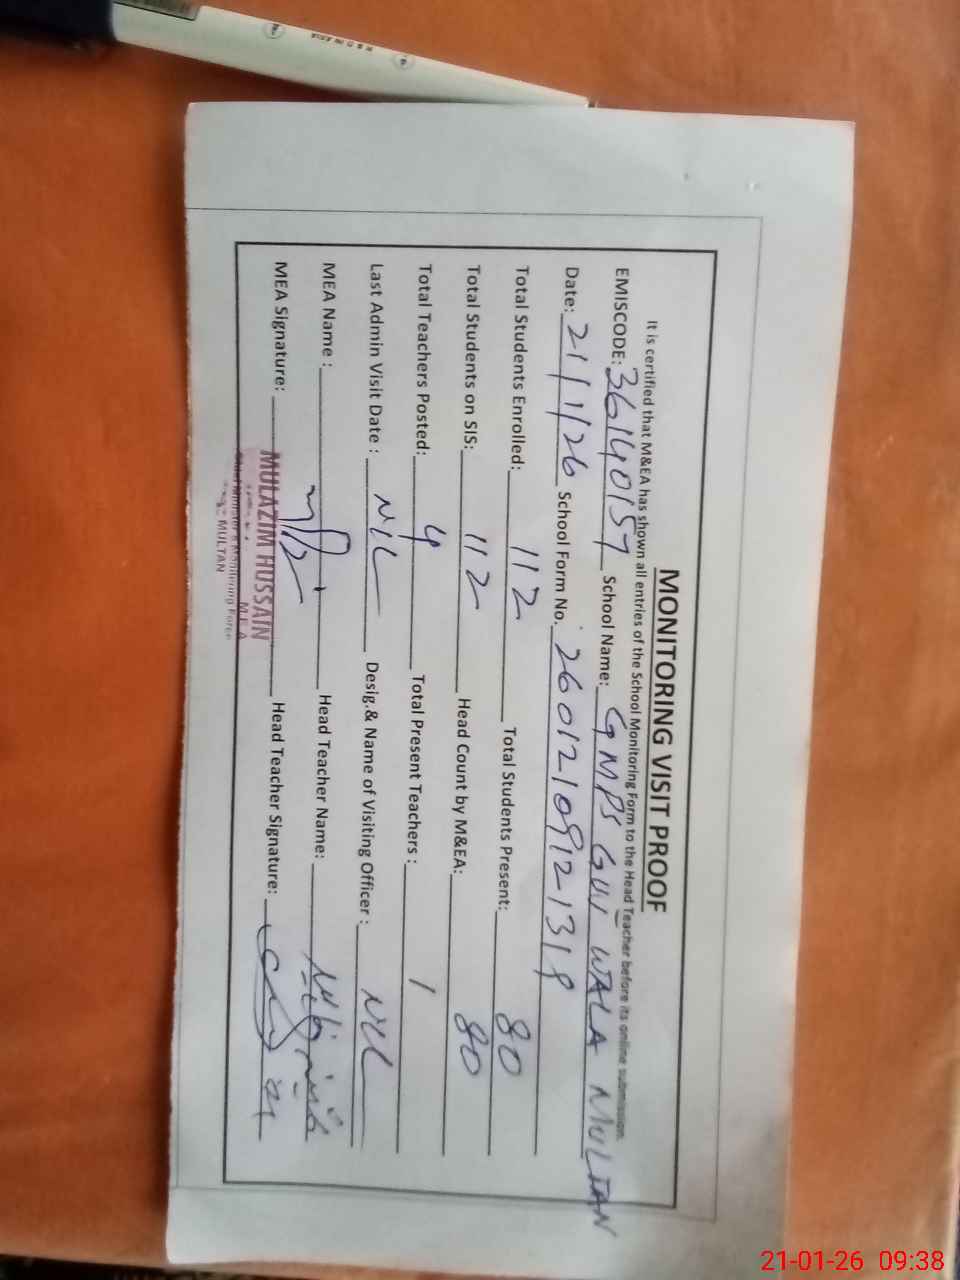 MONITORING VISIT PROOF
It is certified that M&EA has shown all entries of the School Monitoring Form to the Head Teacher before its online submission.
EMISCODE: 36140157 School Name: GMPS GUJ WALA MULTAN
Date: 21/1/26 School Form No. 260121091213
Total Students Enrolled: 112 Total Students Present: 80
Total Students on SIS: 112 Head Count by M&EA: 80
Total Teachers Posted: 4 Total Present Teachers : 1
Last Admin Visit Date : NIL Desig.& Name of Visiting Officer : NIL
MEA Name : Head Teacher Name:
MEA Signature: Head Teacher Signature:
MULAZIM HUSSAIN
M.E.A
Chief Minister's Monitoring Force
MULTAN
21-01-26 09:38